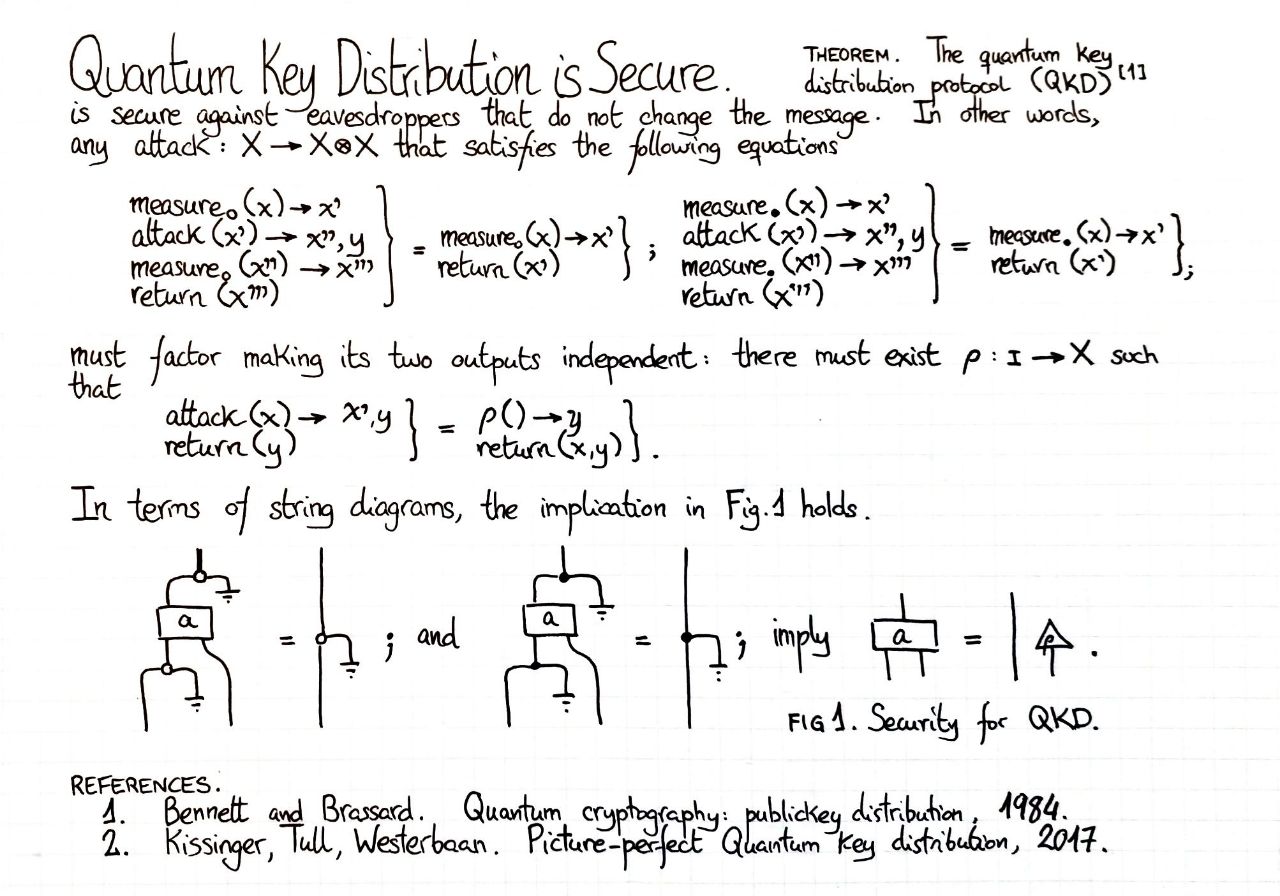 Quantum Key Distribution is Secure. THEOREM. The quantum key
distribution protocol (QKD)[1]
is secure against eavesdroppers that do not change the message. In other words,
any attack: X → X⊗X that satisfies the following equations
measure○(x) → x'
attack(x') → x'', y
measure○(x'') → x'''
return(x''')
} = measure○(x) → x'
return(x') } ;
measure●(x) → x'
attack(x') → x'', y
measure●(x'') → x'''
return(x''')
} = measure●(x) → x'
return(x') };
must factor making its two outputs independent: there must exist ρ : I → X such
that
attack(x) → x', y } = ρ() → y
return(y) return(x,y) } .
In terms of string diagrams, the implication in Fig.1 holds.
a = ; and a = ; imply a = ρ .
FIG 1. Security for QKD.
REFERENCES.
1. Bennett and Brassard. Quantum cryptography: publickey distribution, 1984.
2. Kissinger, Tull, Westerbaan. Picture-perfect Quantum Key distribution, 2017.